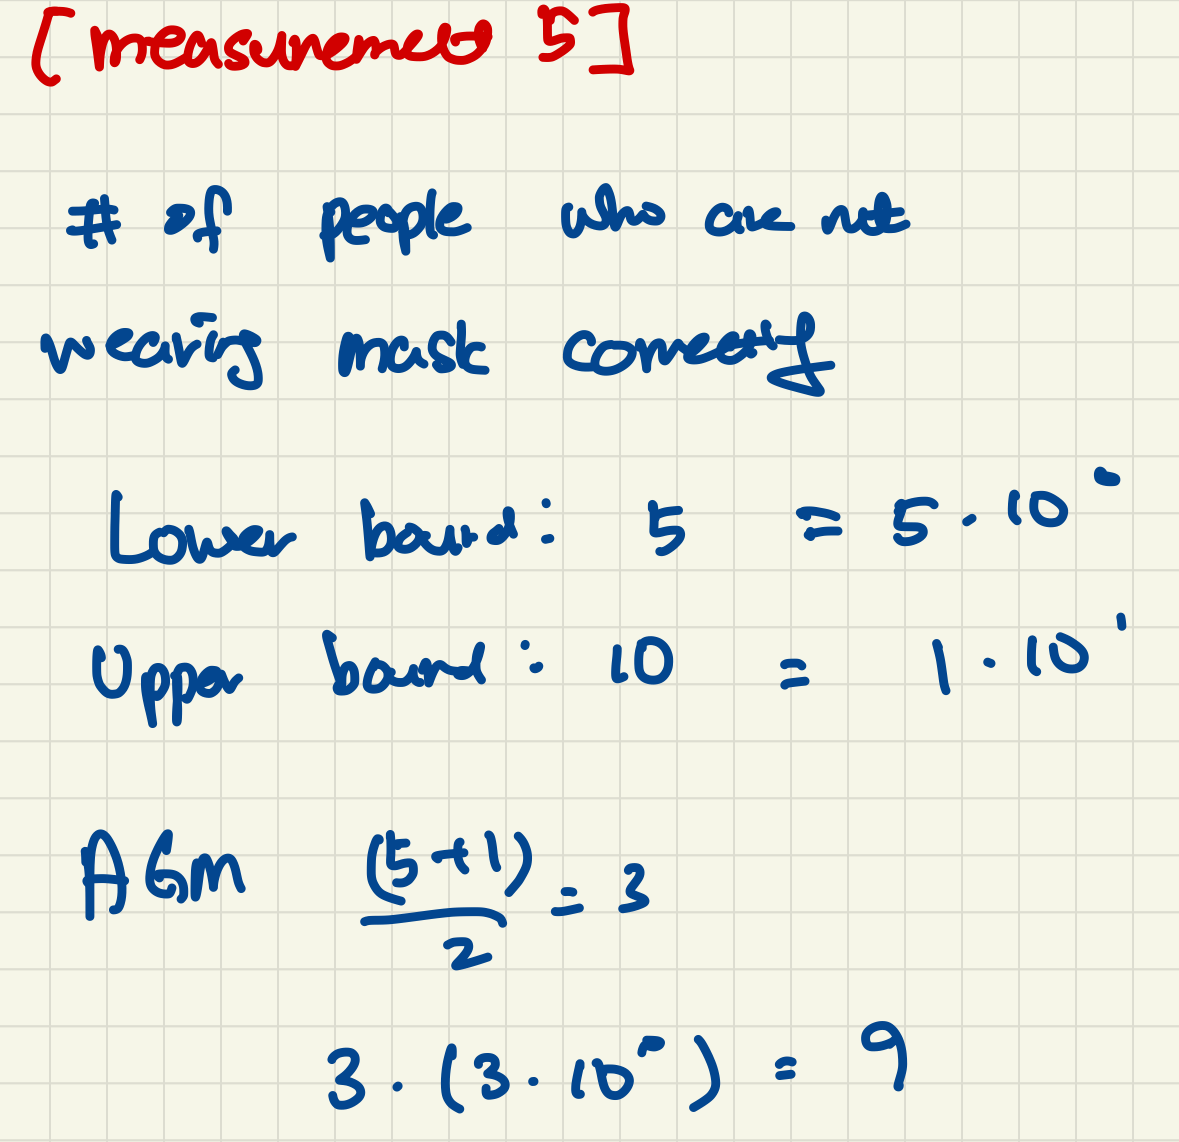 [measurement 5]
# of people who are not
wearing mask correctly
Lower bound: 5 = 5 · 10⁰
Upper bound: 10 = 1 · 10¹
AGM (5+1)/2 = 3
3 · (3 · 10⁰) = 9